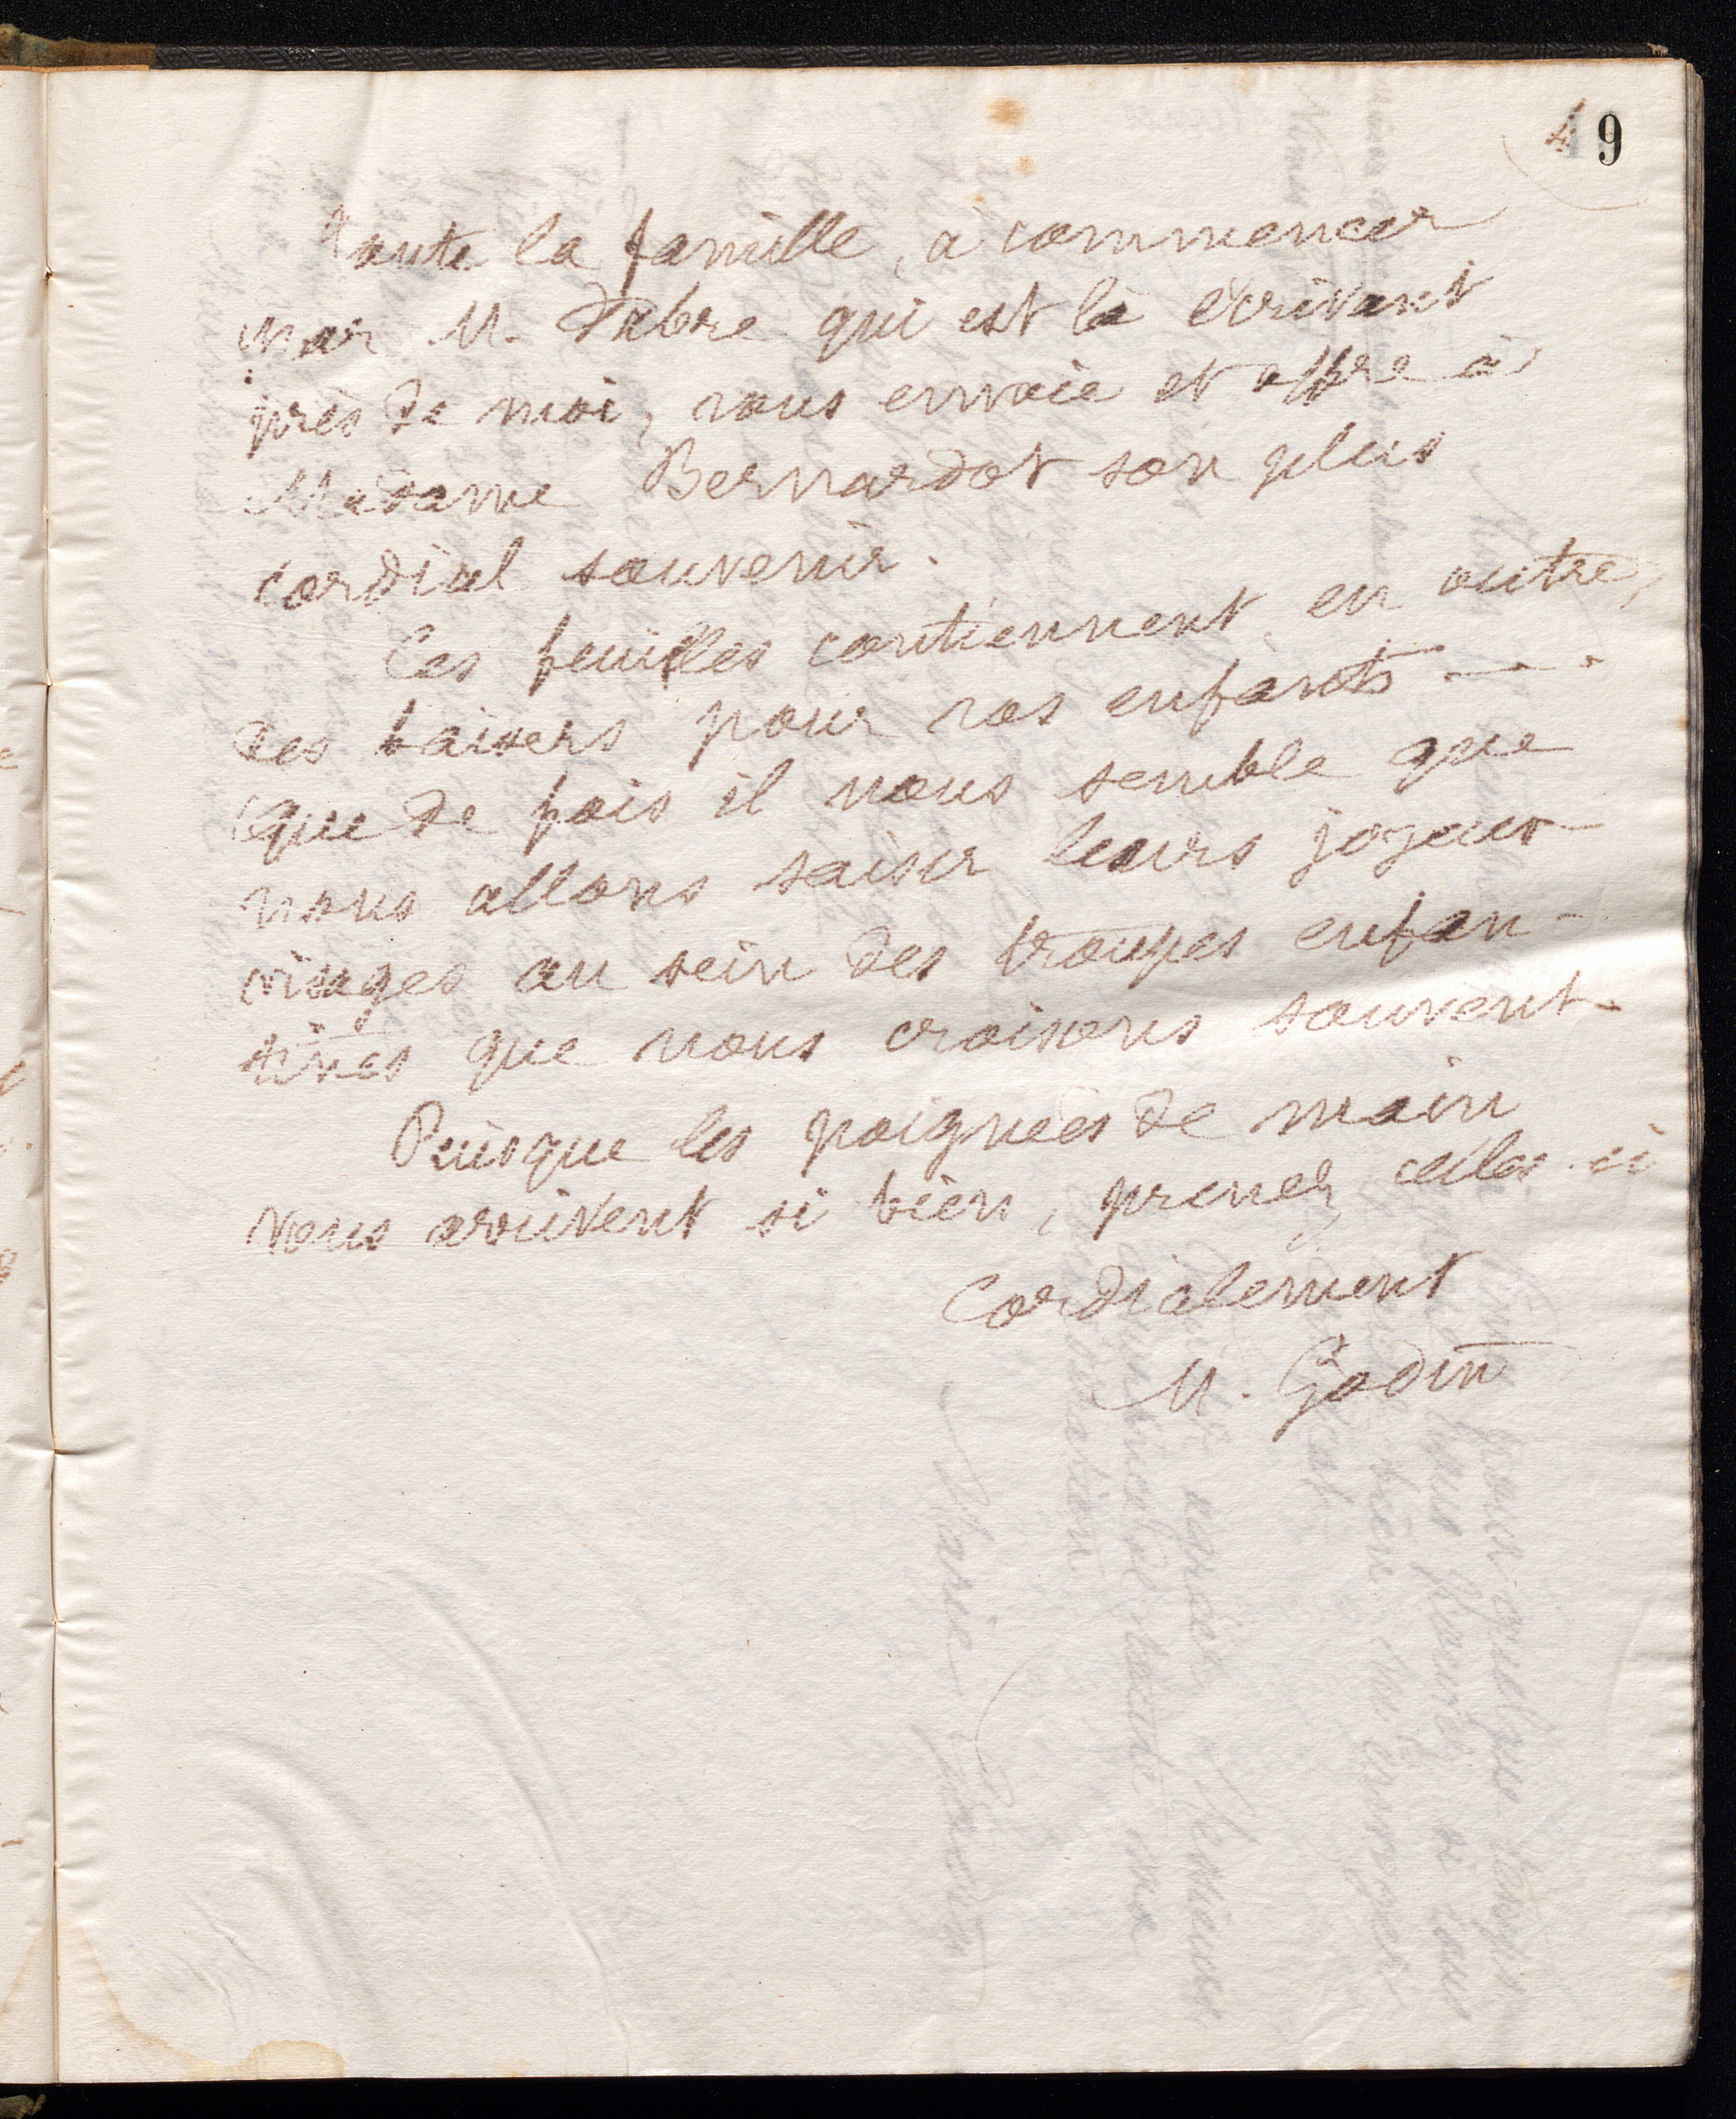 49
toute la famille, à commencer
par M. Fabre qui est là écrivant
près de moi, vous envoie et offre à
Madame Bernardot son plus
cordial souvenir.
Ces feuilles contiennent, en outre,
des baisers pour vos enfants - . .
que de fois il nous semble que
nous allons saisir leurs joyeux
visages au sein des troupes enfan-
tines que nous croisons souvent.
Puisque les poignées de main
vous arrivent si bien, prenez celles-ci
Cordialement
M. Godin